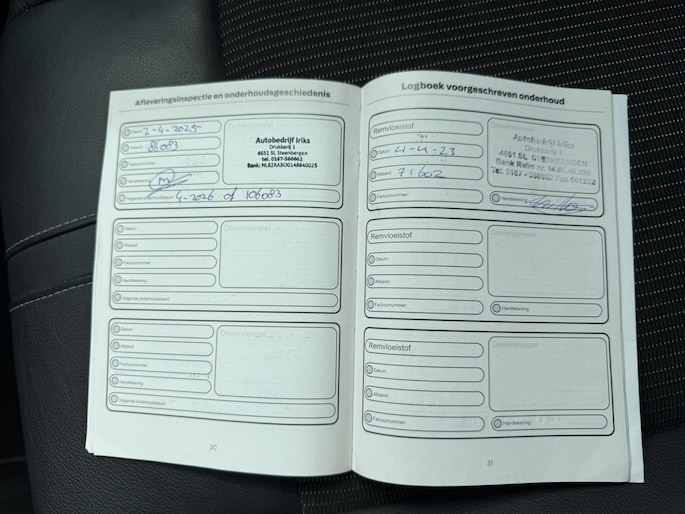 Afleveringsinspectie en onderhoudsgeschiedenis
Datum: 2-4-2025
Afstand: 86083
Factuurnummer:
Handtekening:
Volgende onderhoudsbeurt: 4-2026 of 106083
Dealerstempel
Autobedrijf Iriks
Drukkerij 1
4651 SL Steenbergen
tel. 0167-566661
Bank: NL82RABO0148640025
Datum:
Afstand:
Factuurnummer:
Handtekening:
Volgende onderhoudsbeurt:
Dealerstempel
Datum:
Afstand:
Factuurnummer:
Handtekening:
Volgende onderhoudsbeurt:
Dealerstempel
30
Logboek voorgeschreven onderhoud
Remvloeistof
Datum: 4-4-23
Afstand: 71602
Factuurnummer:
Autobedrijf Iriks
Drukkerij 1
4651 SL STEENBERGEN
Bank Rabo nr.
Tel. 0167 - Fax
Handtekening:
Remvloeistof
Datum:
Afstand:
Factuurnummer:
Dealerstempel
Handtekening:
Remvloeistof
Datum:
Afstand:
Factuurnummer:
Dealerstempel
Handtekening:
31